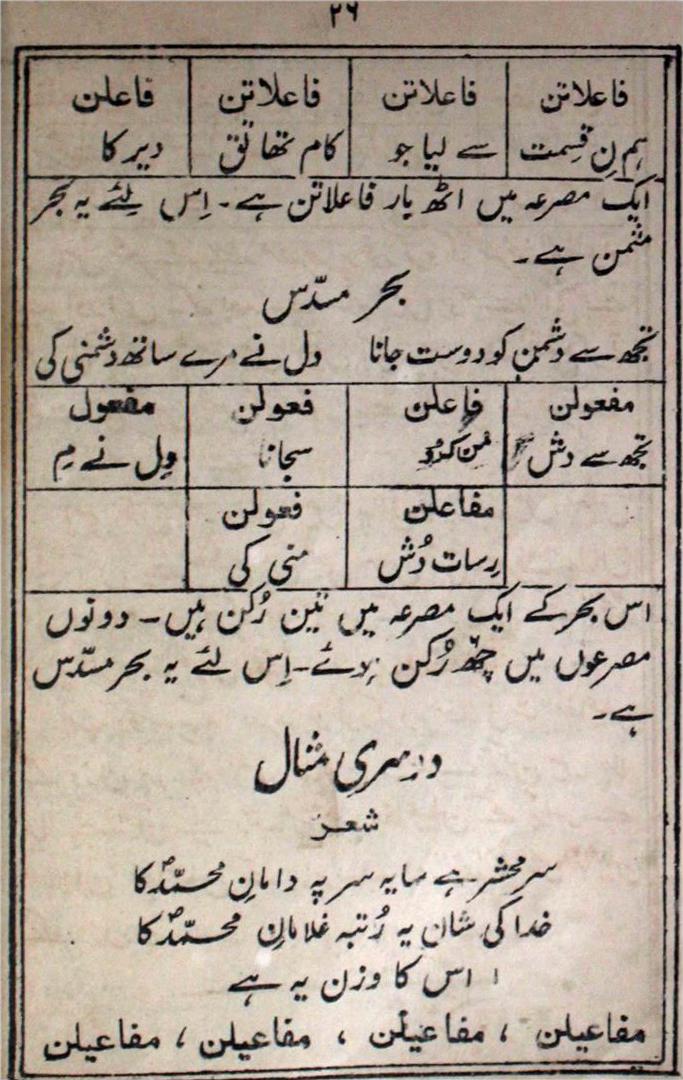 ۲۶
فاعلاتن فاعلاتن فاعلاتن فاعلن
ہم نِ قسمت سے لیا جو کام تھا تَق دیر کا
ایک مصرعہ میں اٹھ بار فاعلاتن ہے۔ اِس لِئے یہ بحر
مثمن ہے۔
بحر مسدّس
تجھ سے دشمن کو دوست جانا دل نے مرے ساتھ دشمنی کی
مفعولن فاعلن فعولن مفعول
تجھ سے دش سجانا دِل نے مِ
مفاعلن فعولن
رِسات دُش منی کی
اس بحر کے ایک مصرعہ میں تین رُکن ہیں۔ دونوں
مصرعوں میں چھ رُکن ہوئے۔ اِس لئے یہ بحر مسدّس
ہے۔
دوسری مثال
شعر
سرِ محشر ہے سایہ سر پہ دامانِ محمّدؐ کا
خدا کی شان یہ رُتبہ غلامانِ محمّدؐ کا
اس کا وزن یہ ہے
مفاعیلن ، مفاعیلن ، مفاعیلن ، مفاعیلن